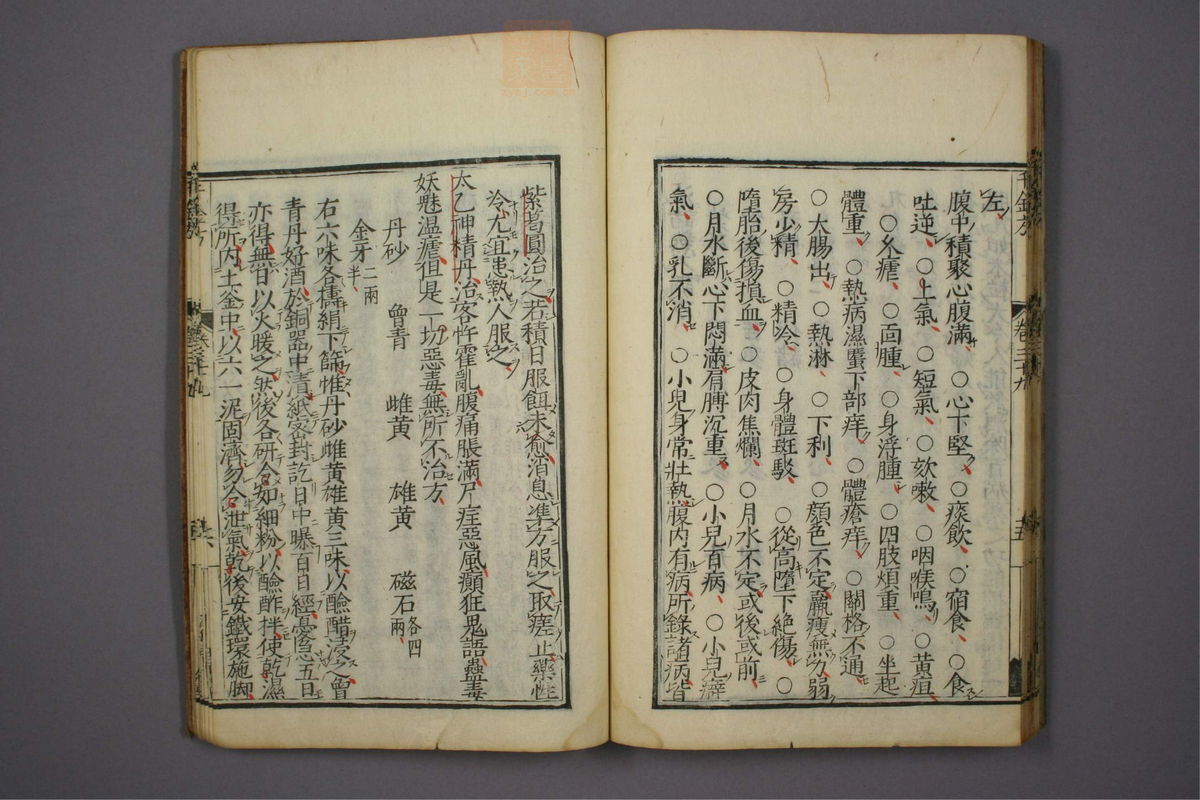 左
腹中積聚心腹滿 ○心下堅 ○痰飲 ○宿食 ○食
吐逆 ○上氣 ○短氣 ○欬嗽 ○咽喉鳴 ○黃疸
○久瘧 ○面腫 ○身浮腫 ○四肢煩重 ○坐起
體重 ○熱病濕䘌下部痒 ○體瘡痒 ○關格不通
○大腸出 ○熱淋 ○下利 ○顏色不定羸瘦無力弱
房少精 ○精冷 ○身體斑駁 ○從高墮下絕傷 ○
墮胎後傷損血 ○皮肉焦爛 ○月水不定或後或前
○月水斷心下悶滿肩膊沉重 ○小兒百病 ○小兒癖
氣 ○乳不消 ○小兒身常壯熱腹內有病所錄諸病皆
卷三十九
紫葛圓治之若積日服餌未愈消息準方服之取瘥止藥性
冷尤宜患熱人服之
太乙神精丹治客忤霍亂腹痛脹滿尸疰惡風癲狂鬼語蠱毒
妖魅溫瘧但是一切惡毒無所不治方
丹砂 曾青 雌黃 雄黃 磁石各四兩
金牙二兩半
右六味各擣絹下篩惟丹砂雌黃雄黃三味以醶醋浸令曾
青丹好酒於銅器中漬紙密封訖日中曝百日經憂急五日
亦得無日以火暖之然後各研令如細粉以醶酢拌使乾濕
得所內土釜中以六一泥固濟勿令泄氣乾後安鐵環施脚